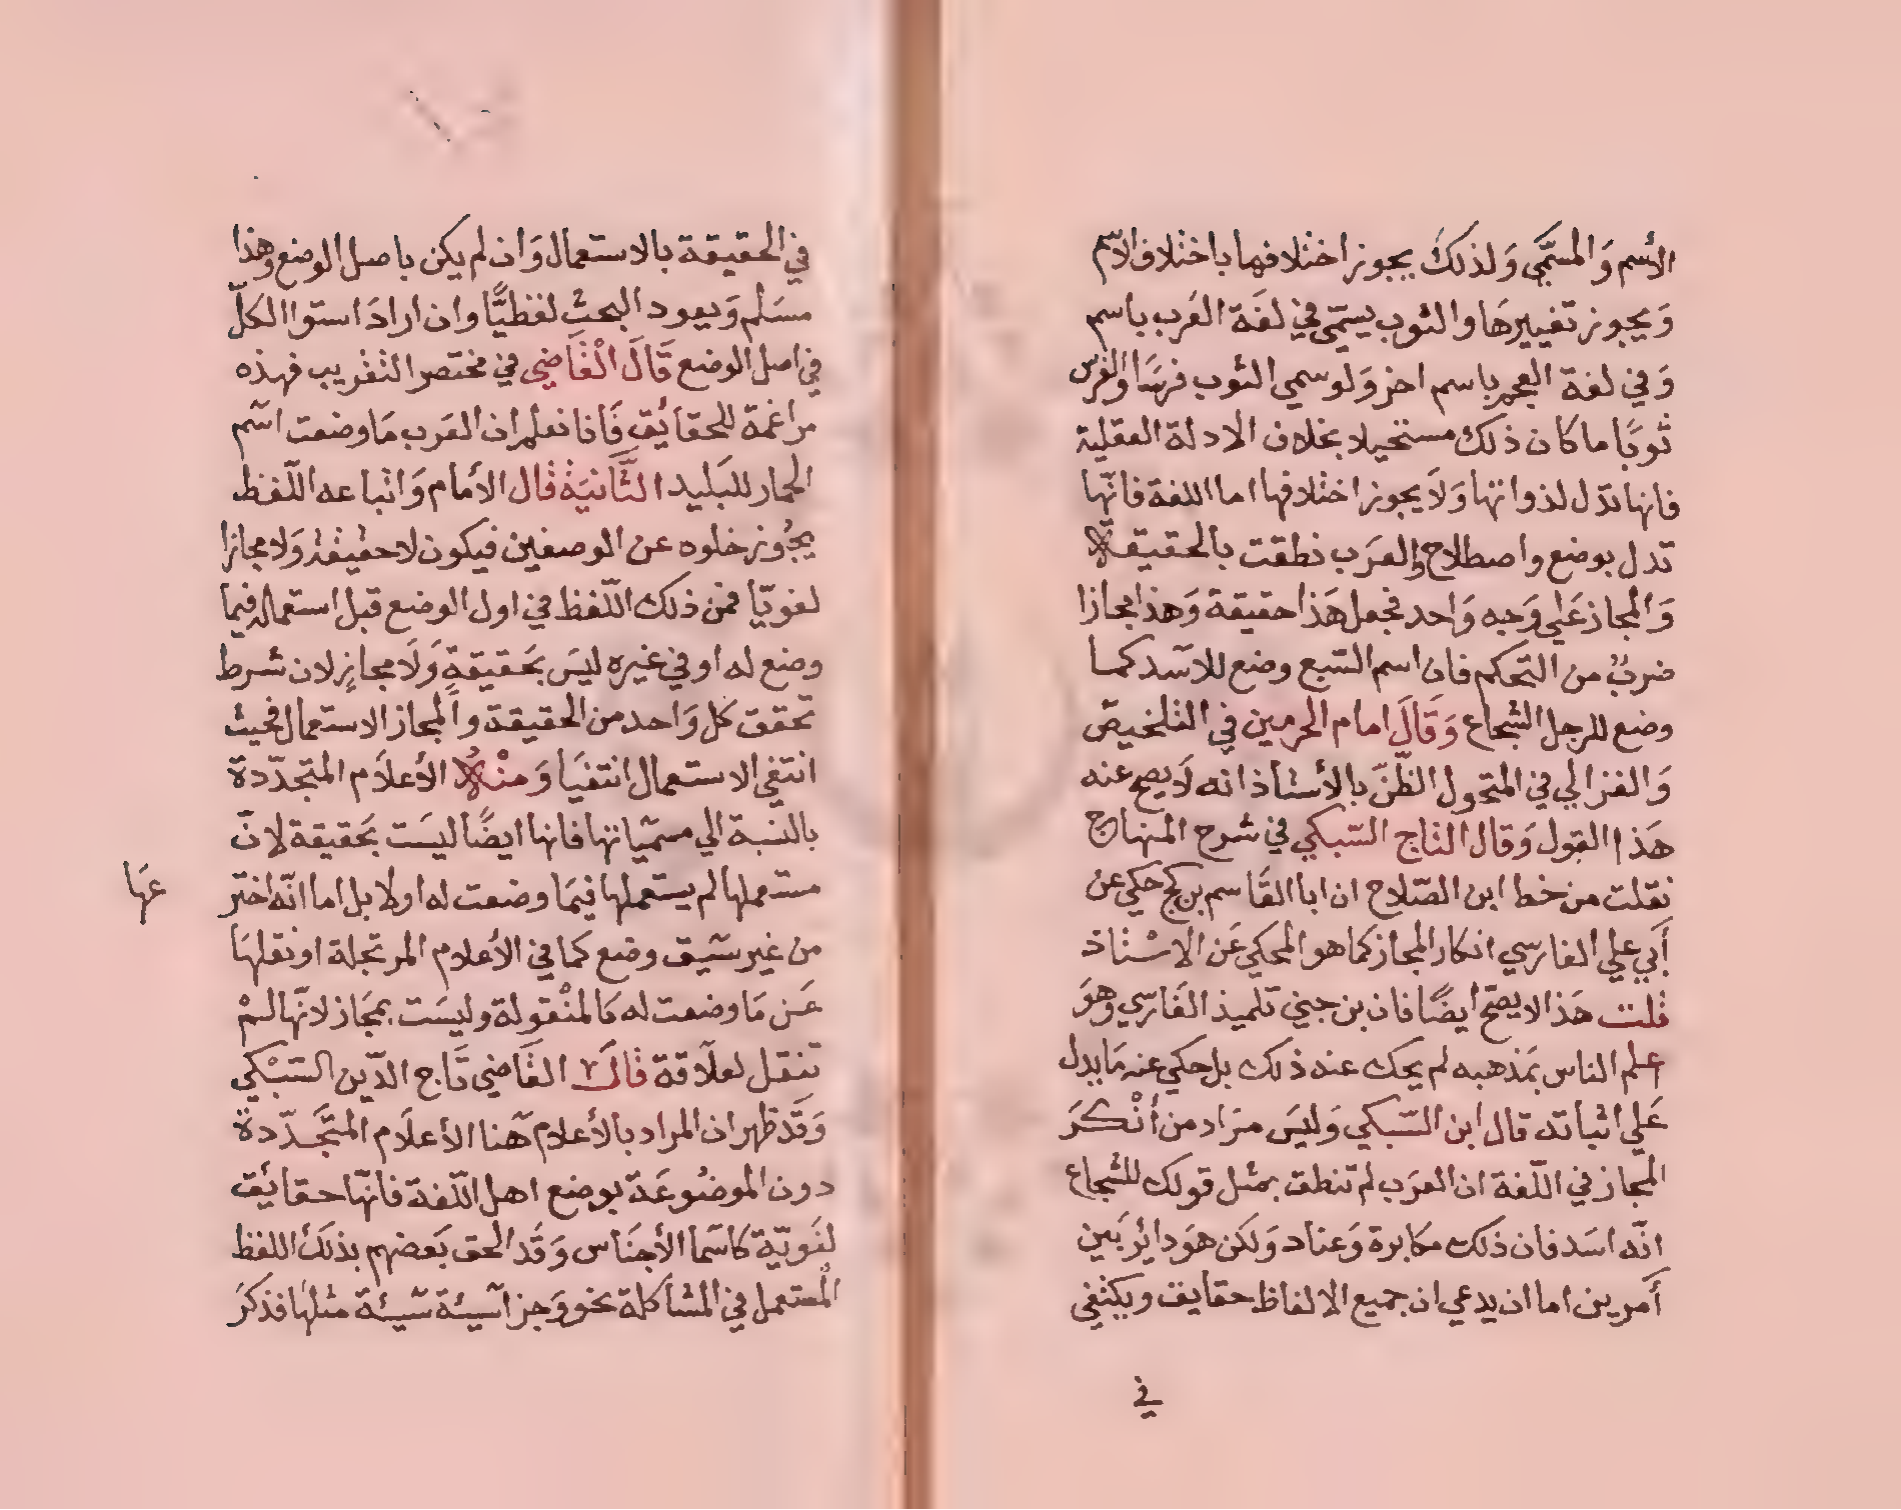 الأسم وَالمسَّمي وَلذلك يجوز اختلافهما باختلاف الاسم
وَيجوز تغييرهَا والثوب يسَمّى في لغَة العَرب باسم
وَفي لغة العجم باسم اخر وَلو سمي الثوب فرسَا والفرس
ثوبًا ما كان ذلك مستحيلا بخلاف الادلة العقلية
فانها تدل لذواتها وَلَا يجوز اختلافها اما اللغة فانّها
تدل بوضع واصطلاح والعرَب نطقت بالحقيقة
وَالمجاز عَلي وَجه وَاحد فجعل هَذا حقيقة وَهذا مجازا
ضربٌ من التحكم فان اسم السّبع وضع للاسَد كما
وضع للرجل الشجاع وَقَالَ امام الحرمين في التلخيص
وَالغزالي في المنخول الظّنّ بالأستاذ انه لَا يصح عنه
هَذا القول وَقال التاج السّبكي في شرح المنهاج
نقلت من خط ابن الصّلاح ان ابا القَاسم بن كج حكي عن
أبي علي الفارسي انكار المجاز كما هو المحكي عَن الاسْتاذ
قلت هَذا لا يصح ايضًا فان بن جني تلميذ الفَارسي وهوَ
اعلم الناس بمَذهبه لم يحك عنه ذلك بل حكي عنه مَا يدل
عَلي اثباته قال ابن السّبكي وَليسَ مرَاد من أنْكرَ
المجاز في اللّغة ان العرَب لم تنطق بمثل قولك للشجاع
انّه اسَد فان ذلك مكابرة وَعناد وَلكن هوَ دائر بَين
أَمرين اما ان يدعي ان جميع الالفاظ حقايق ويكتفي
في
في الحقيقة بالاستعمال وَان لم يكن باصل الوضع وهذا
مسَلم وَيعود البحث لفظيًّا وان ارادَ استوا الكلّ
في اصل الوضع قَالَ الْقَاضِي في مختصر التقريب فهذه
مراغمة للحقائق فَانا نعلم ان العَرب مَا وضعت اسم
الحمار للبَليد الثَّانيَة قال الأمام وَاتباعه اللّفظ
يجُوز خلوه عن الوصفين فيكون لا حقيقة وَلا مجازا
لغويّا فمن ذلك اللّفظ في اول الوضع قبل استعماله فيما
وضع له او في غيره ليسَ بحَقيقةٍ وَلَا مجازٍ لان شرط
تحقق كل وَاحد من الحقيقة وَالمجاز الاستعمال فحيث
انتفي الاستعمال انتفيَا وَمنْهُ الأعلَام المتجدّدة
بالنسبة الي مسمّياتها فانها ايضًا ليسَت بحَقيقة لانّ
مستعملها لم يستعملها فيمَا وضعت له اولا بل اما انّه اختر
عهَا
من غير سَبق وضع كما في الأعلام المرتجلة او نقلهَا
عَن مَا وضعت له كَالمنْقولة وليسَت بمجَاز لانّها لمْ
تنقل لعلَاقة قَالَ القَاضي تَاج الدّين السّبْكي
وَقَد ظهر ان المراد بالأعلام هَنا الأعلَام المتَجَدّدة
دون الموضُوعَة بوضع اهل اللّغة فانّها حقائق
لغَويّة كاسمَا الأجنَاس وَقد الحق بَعضهم بذلك اللفظ
المُستعمل في المشاكلة نحو وَجزا سيئة سَيئة مثلهَا فذكرَ